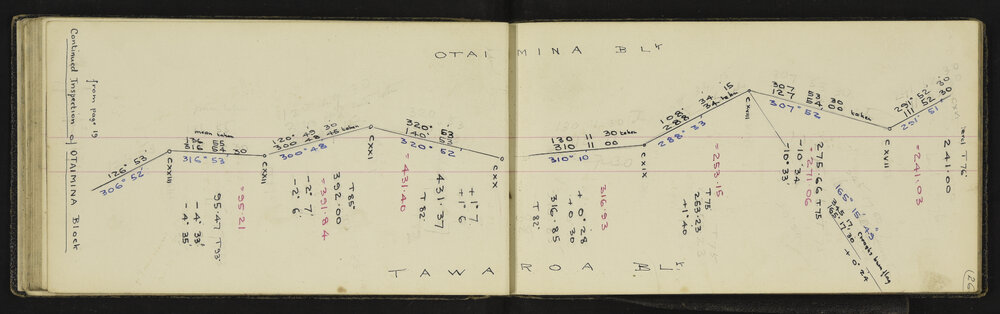 Continued Inspection of OTAIMINA Block
from page 19
OTAIMINA BLK
126° 53'
306° 52'
CXXIII
mean taken
316 54 30
316° 53'
= 95.21
95.47 T93°
- 4° 33'
- 4° 35'
CXXII
120° 49 30
300 48 45 taken
300° 48
T85°
392.00
= 391.84
- 2° 7'
- 2° 6'
CXXI
320° 53
140° 53
320° 52
= 431.40
431.37
T82°
+ 1° 7
+ 1° 6
CXX
130 11 30 taken
310 11 00
310° 10
316.93
+ 0° 28
+ 0 30
316.85
T82°
CXIX
34 15
34 taken
288° 33
= 253.15
T75
253.23
+ 1° 40
CXVIII
307 53 30
127 54 00
307° 52
275.66 T75
= 271.06
- 10° 34
- 10° 33'
165° 15' 45"
345 17
165° 17 30
+ 0° 24
CXVII
291° 52' 30
111 52 30
291° 51
= 241.03
241.00
T76°
CXVI
TAWAROA BLK
26